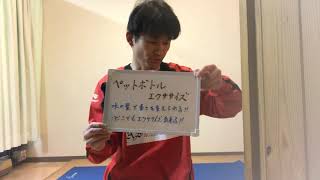 ペットボトル
エクササイズ
水の量で重さを変えられる!!
どこでもエクササイズ出来る!!